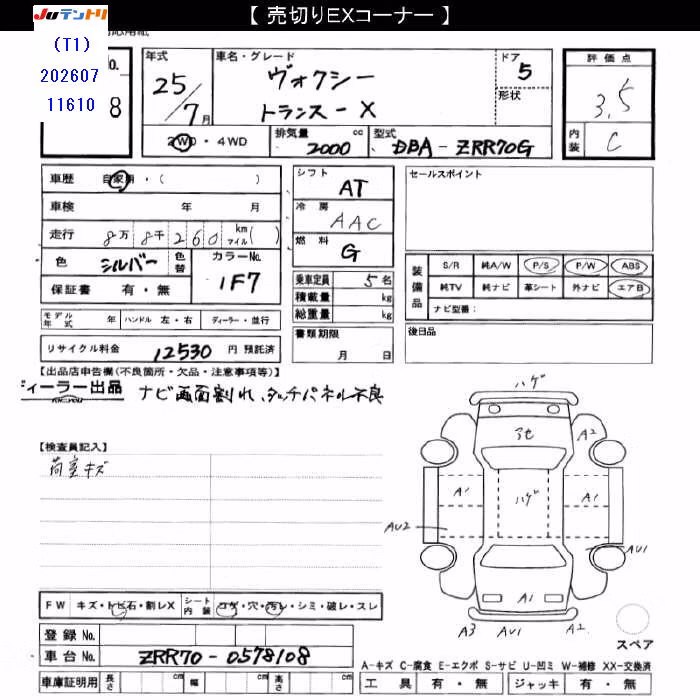 【 売切りEXコーナー 】
JUテントリ
(T1)
202607
11610
No.
8
年式
25/7月
車名・グレード
ヴォクシー
トランスーX
ドア
5
形状
評価点
3.5
内装
C
2WD・4WD
排気量
2000 cc
型式
DBA-ZRR70G
車歴 自家用・( )
車検 年 月
走行 8万8千260 km マイル( )
色 シルバー 色替 カラーNo. 1F7
保証書 有・無
モデル年式 年 ハンドル 左・右 ディーラー・並行
リサイクル料金 12530 円 預託済
シフト AT
冷房 AAC
燃料 G
乗車定員 5名
積載量 kg
総重量 kg
書類期限
月 日
セールスポイント
装備品
S/R 純A/W P/S P/W ABS
純TV 純ナビ 革シート 外ナビ エアB
ナビ型番:
後日品
【出品店申告欄(不良箇所・欠品・注意事項等)】
ディーラー出品 ナビ画面割れ、タッチパネル不良
【検査員記入】
荷室キズ
ハゲ
アセ
A2
A1
ハゲ
A1
AU2
AU1
A1
A3 AU1 A2
スペア
FW キズ・トビ石・割レX シート内装 コゲ・穴・汚レ・シミ・破レ・スレ
登録 No.
車台 No. ZRR70-0578108
車庫証明用 長さ cm 幅 cm 高さ cm
A-キズ C-腐食 E-エクボ S-サビ U-凹ミ W-補修 XX-交換済
工具 有・無 ジャッキ 有・無